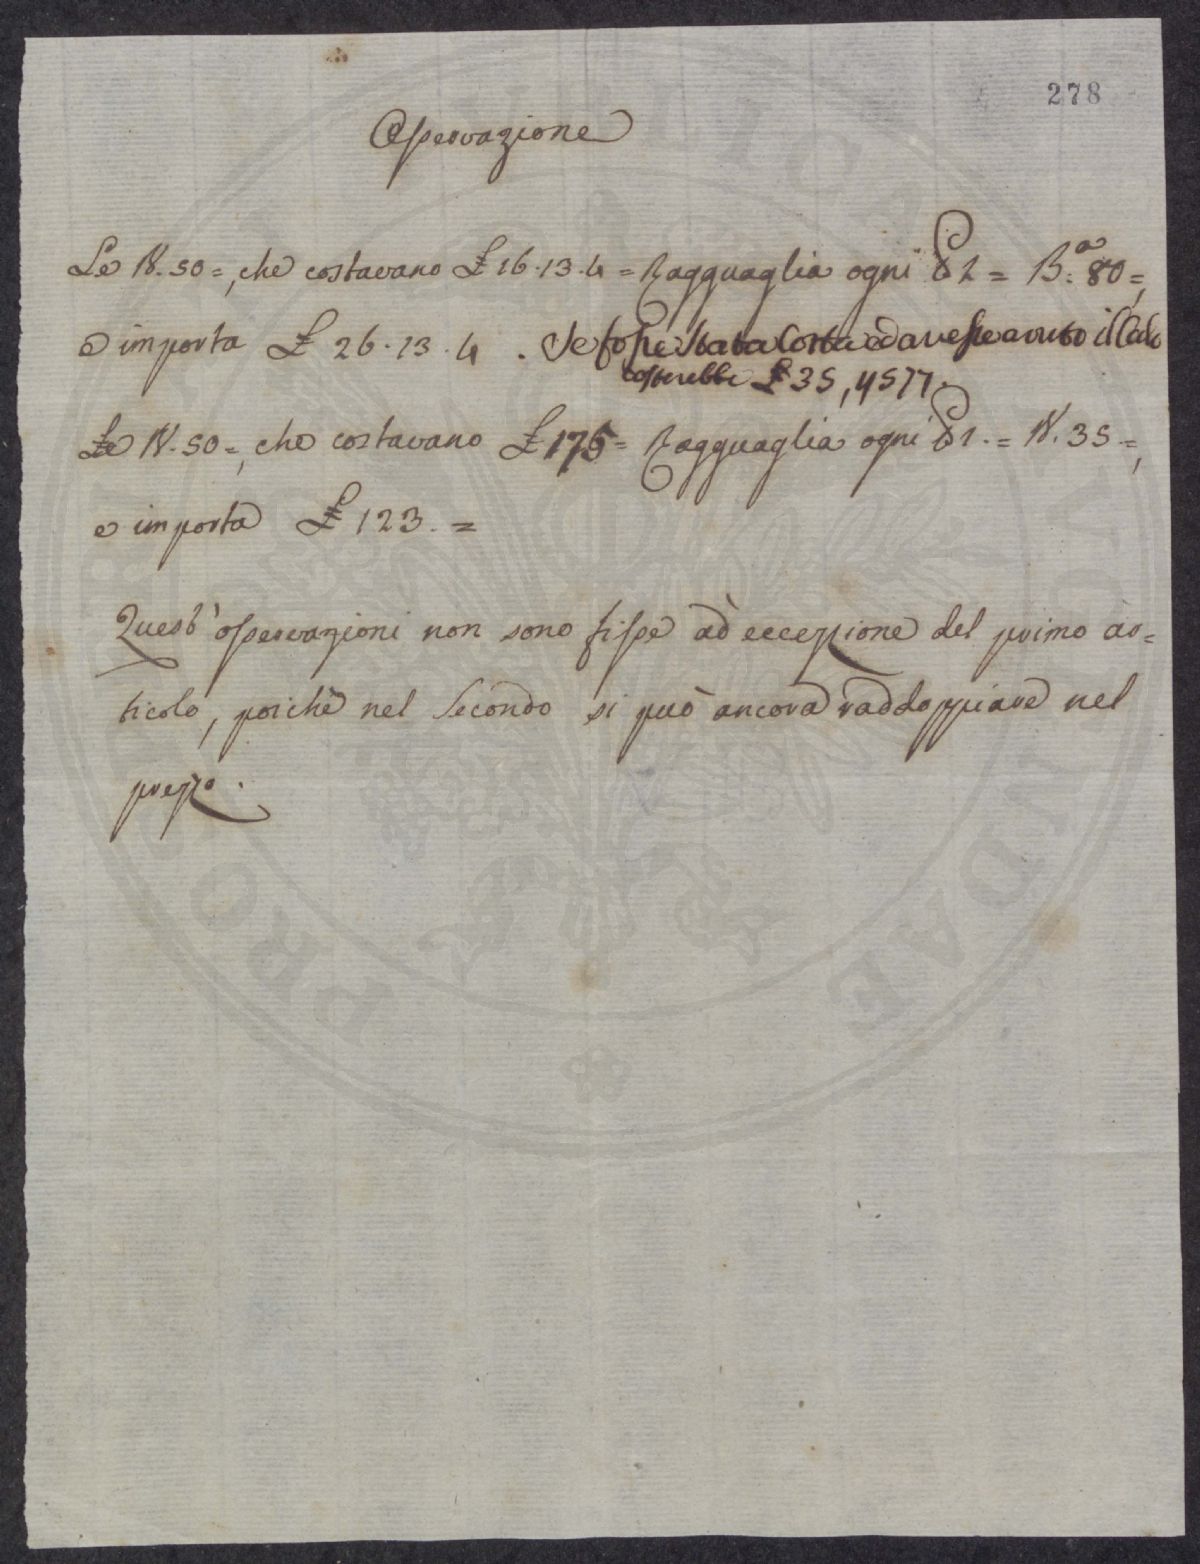 278
Osservazione
Le N. 50 =, che costavano £ 16.13.4 = Ragguaglia ogni 1 = B.a 80 =,
e importa £ 26.13.4. Se fosse stata Cotta ed avesse avuto il Calo
costerebbe £ 35,
Le N. 50 =, che costavano £ 175 = Ragguaglia ogni 1. = N. 35 =,
e importa £ 123. =
Quest' osservazioni non sono fisse ad eccezzione del primo ar=
ticolo, poichè nel Secondo si può ancora raddoppiare nel
prezzo.